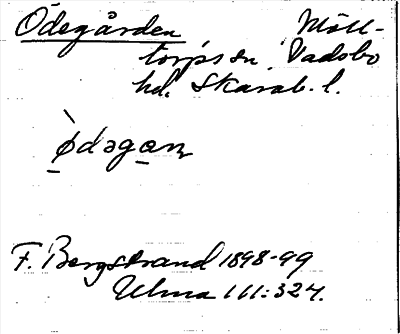 Ödegården Mölltorps sn, Vadsbo
hd. Skarab. l.
ø̀dəgaɳ
F. Bergstrand 1898-99
Ulma 111:324.